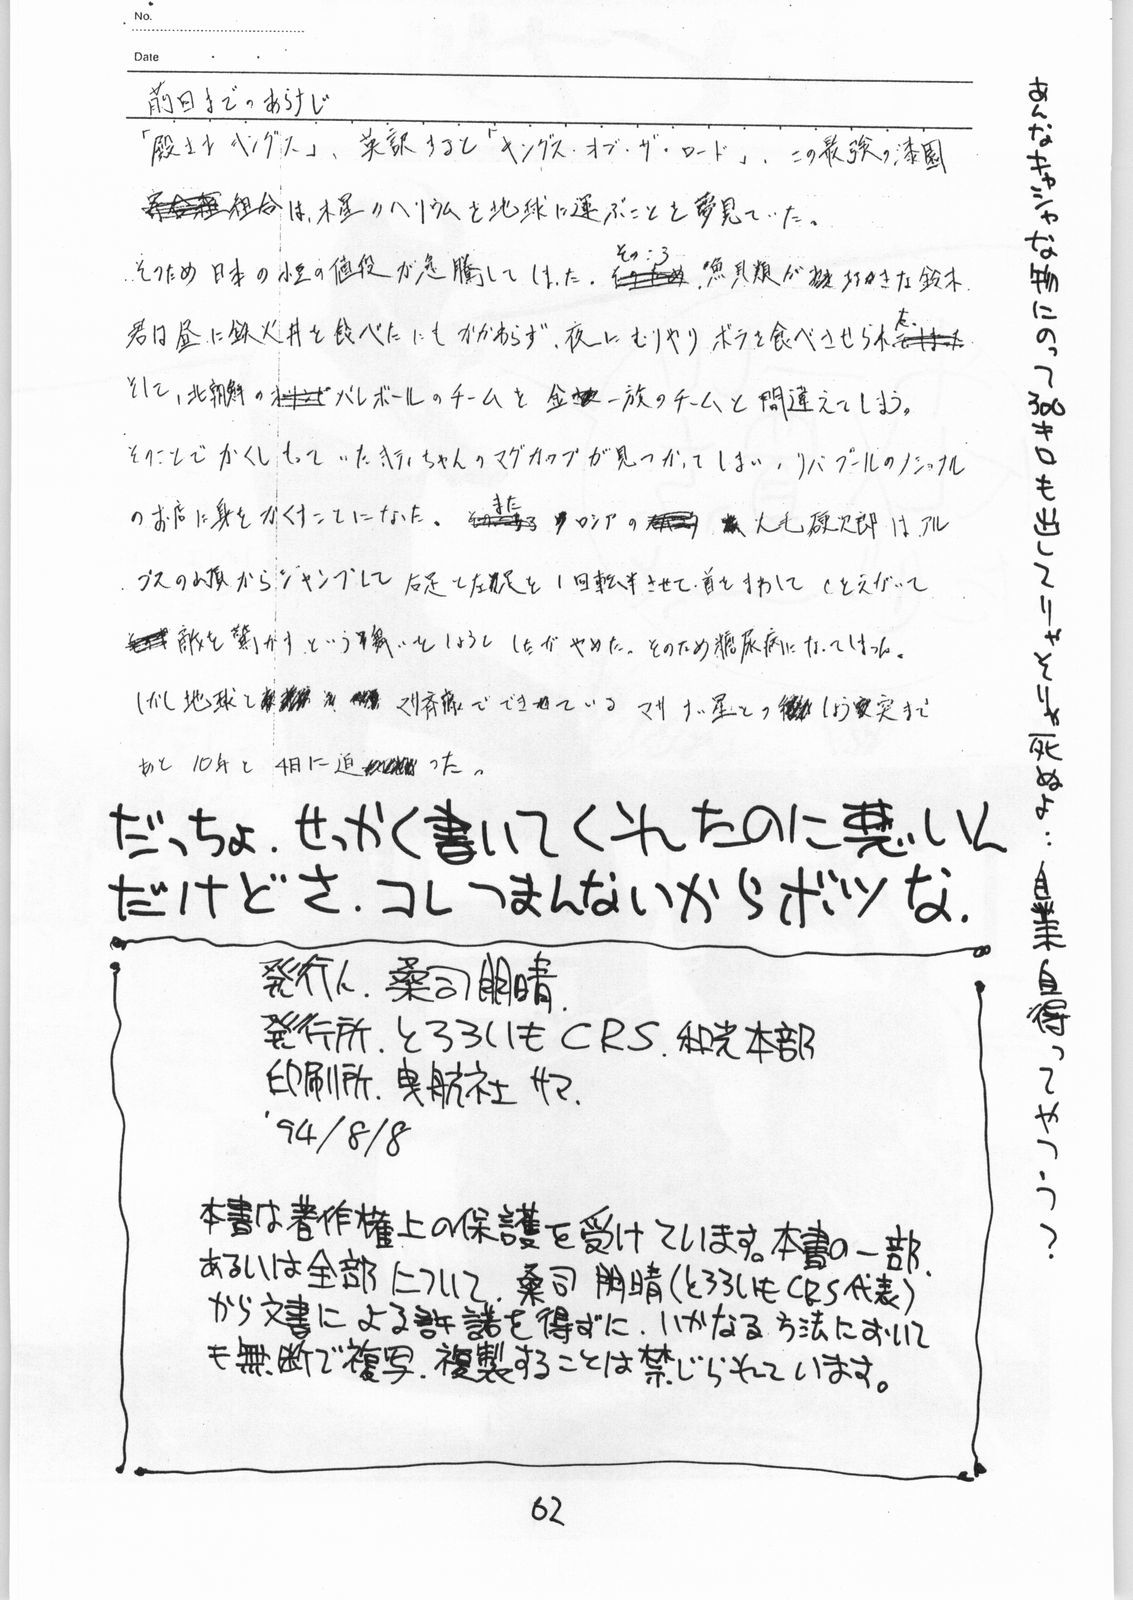 No.
Date
前回までのあらすじ
「殿さまキングス」、英訳すると「キングス・オブ・ザ・ロード」、この最強の漆園
組合は、木星のヘリウムを地球に運ぶことを夢見ていた。
そのため日本の小豆の値段が急騰してしまった。そのころ、魚貝類が好きな鈴木
君は昼に鉄火丼を食べたにもかかわらず、夜にむりやりボラを食べさせられた。
そして、北朝鮮のバレーボールのチームを金一族のチームと間違えてしまう。
そのことでかくしもっていたキティちゃんのマグカップが見つかってしまい、リバプールの
のお店に身をかくすことになった。またロシアの大毛硬次郎はアル
プスの山頂からジャンプして右足と左足を1回転半させて、首をまわして
敵を驚かすという
しようとしたがやめた。そのため糖尿病になってしまった。
しかし地球とでできているマサオ星とのしょう突まで
あと10年と4日に迫った。
だっちょ.せっかく書いてくれたのに悪いん
だけどさ.コレつまんないからボツな.
発行人.桑司朋晴.
発行所.とろろいもCRS.和光本部
印刷所.曳航社サマ.
'94/8/8
本書は著作権上の保護を受けています。本書の一部.
あるいは全部について.桑司朋晴(とろろいもCRS代表)
から文書による許諾を得ずに.いかなる方法において
も無断で複写.複製することは禁じられています。
あんなキャシャな物にのって300キロも出してりゃそりゃ死ぬよ‥自業自得ってやつう?
62